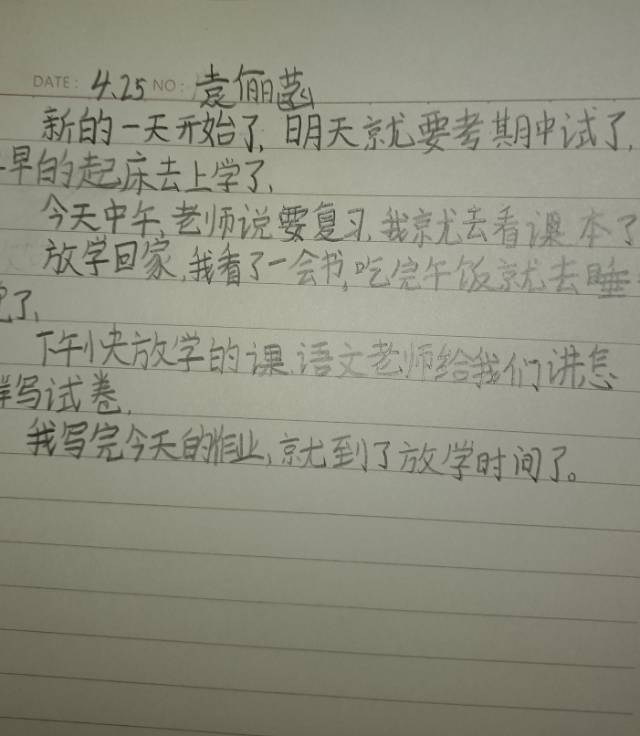 DATE: 4.25 NO: 袁俪菡
新的一天开始了,明天就要考期中试了,
早的起床去上学了,
今天中午,老师说要复习,我就去看课本了
放学回家,我看了一会书,吃完午饭就去睡
了,
下午快放学的课,语文老师给我们讲怎
样写试卷,
我写完今天的作业,就到了放学时间了。